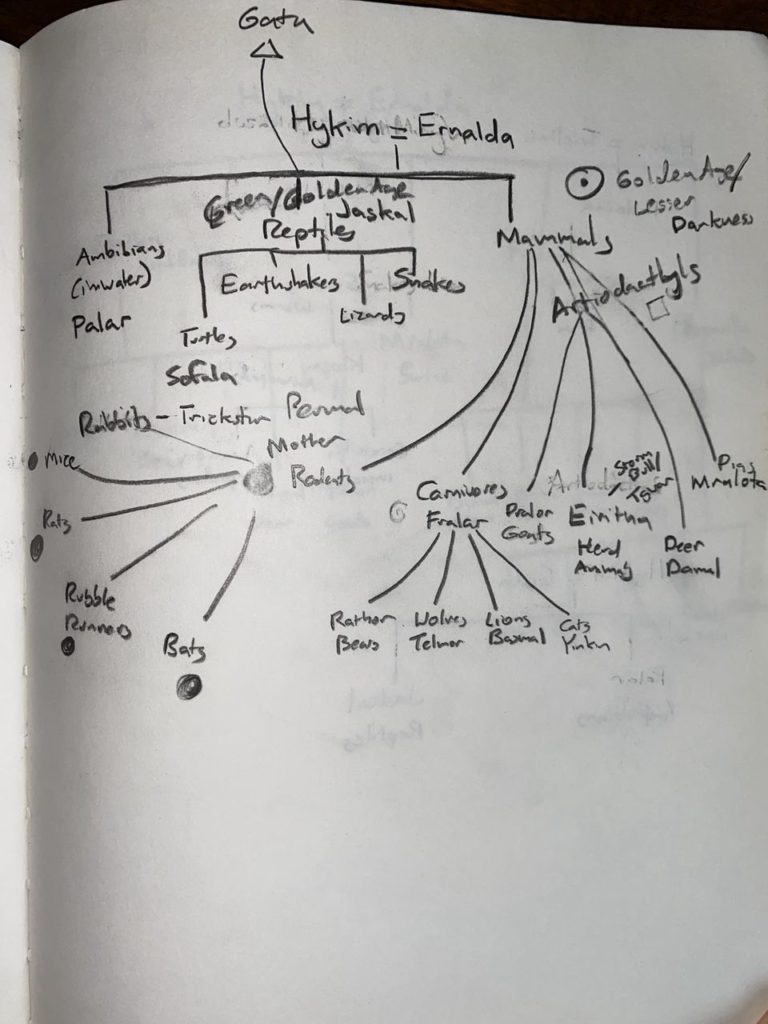 Gata
Hykim = Ernalda
Green/Golden Age
Jaskal
Reptiles
Golden Age/
Lesser
Darkness
Ambibians
(in water)
Palar
Mammals
Earthshakers
Snakes
Lizards
Artiodacthyls
Turtles
Sofala
Rabbits - Trickster
Mother
Rodents
Mice
Rats
Rubble
Runners
Bats
Carnivores
Fralar
Pralor
Goats
Storm
Bull/
Eiritha
Herd
Animals
Deer
Damal
Pigs
Mralota
Rathor
Bears
Wolves
Telmor
Lions
Basmal
Cats
Yinkin